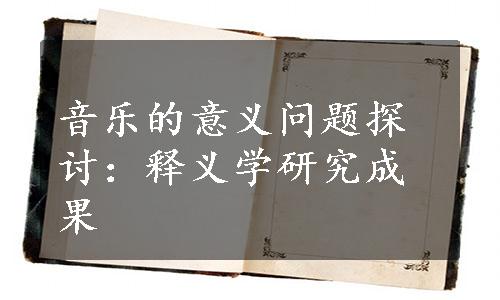 音乐的意义问题探
讨：释义学研究成
果